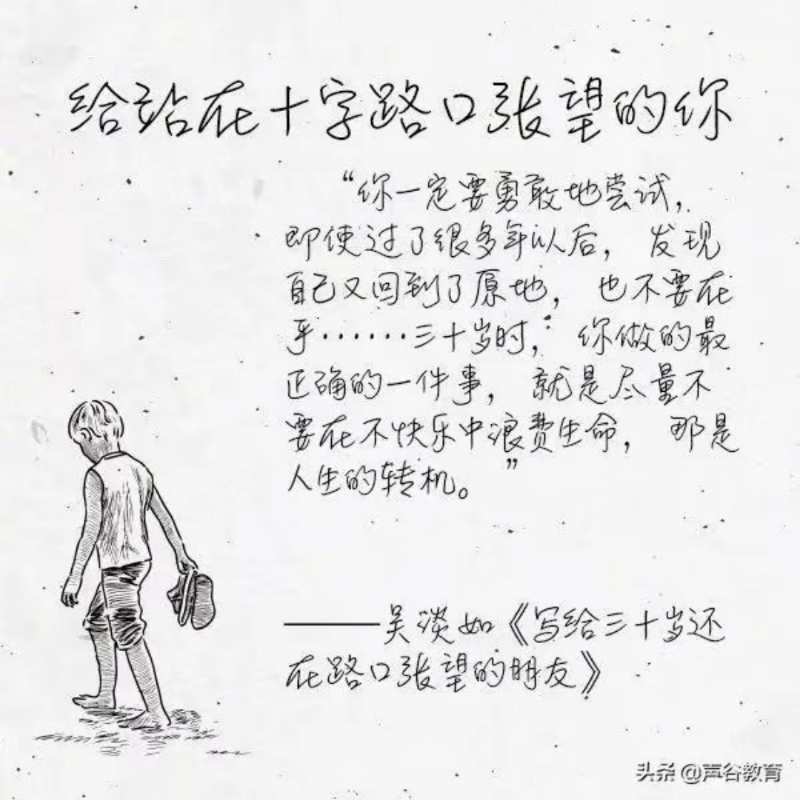 给站在十字路口张望的你
“你一定要勇敢地尝试，
即使过了很多年以后，发现
自己又回到了原地，也不要在
乎……三十岁时，你做的最
正确的一件事，就是尽量不
要在不快乐中浪费生命，那是
人生的转机。”
——吴淡如《写给三十岁还
在路口张望的朋友》
头条 @声谷教育